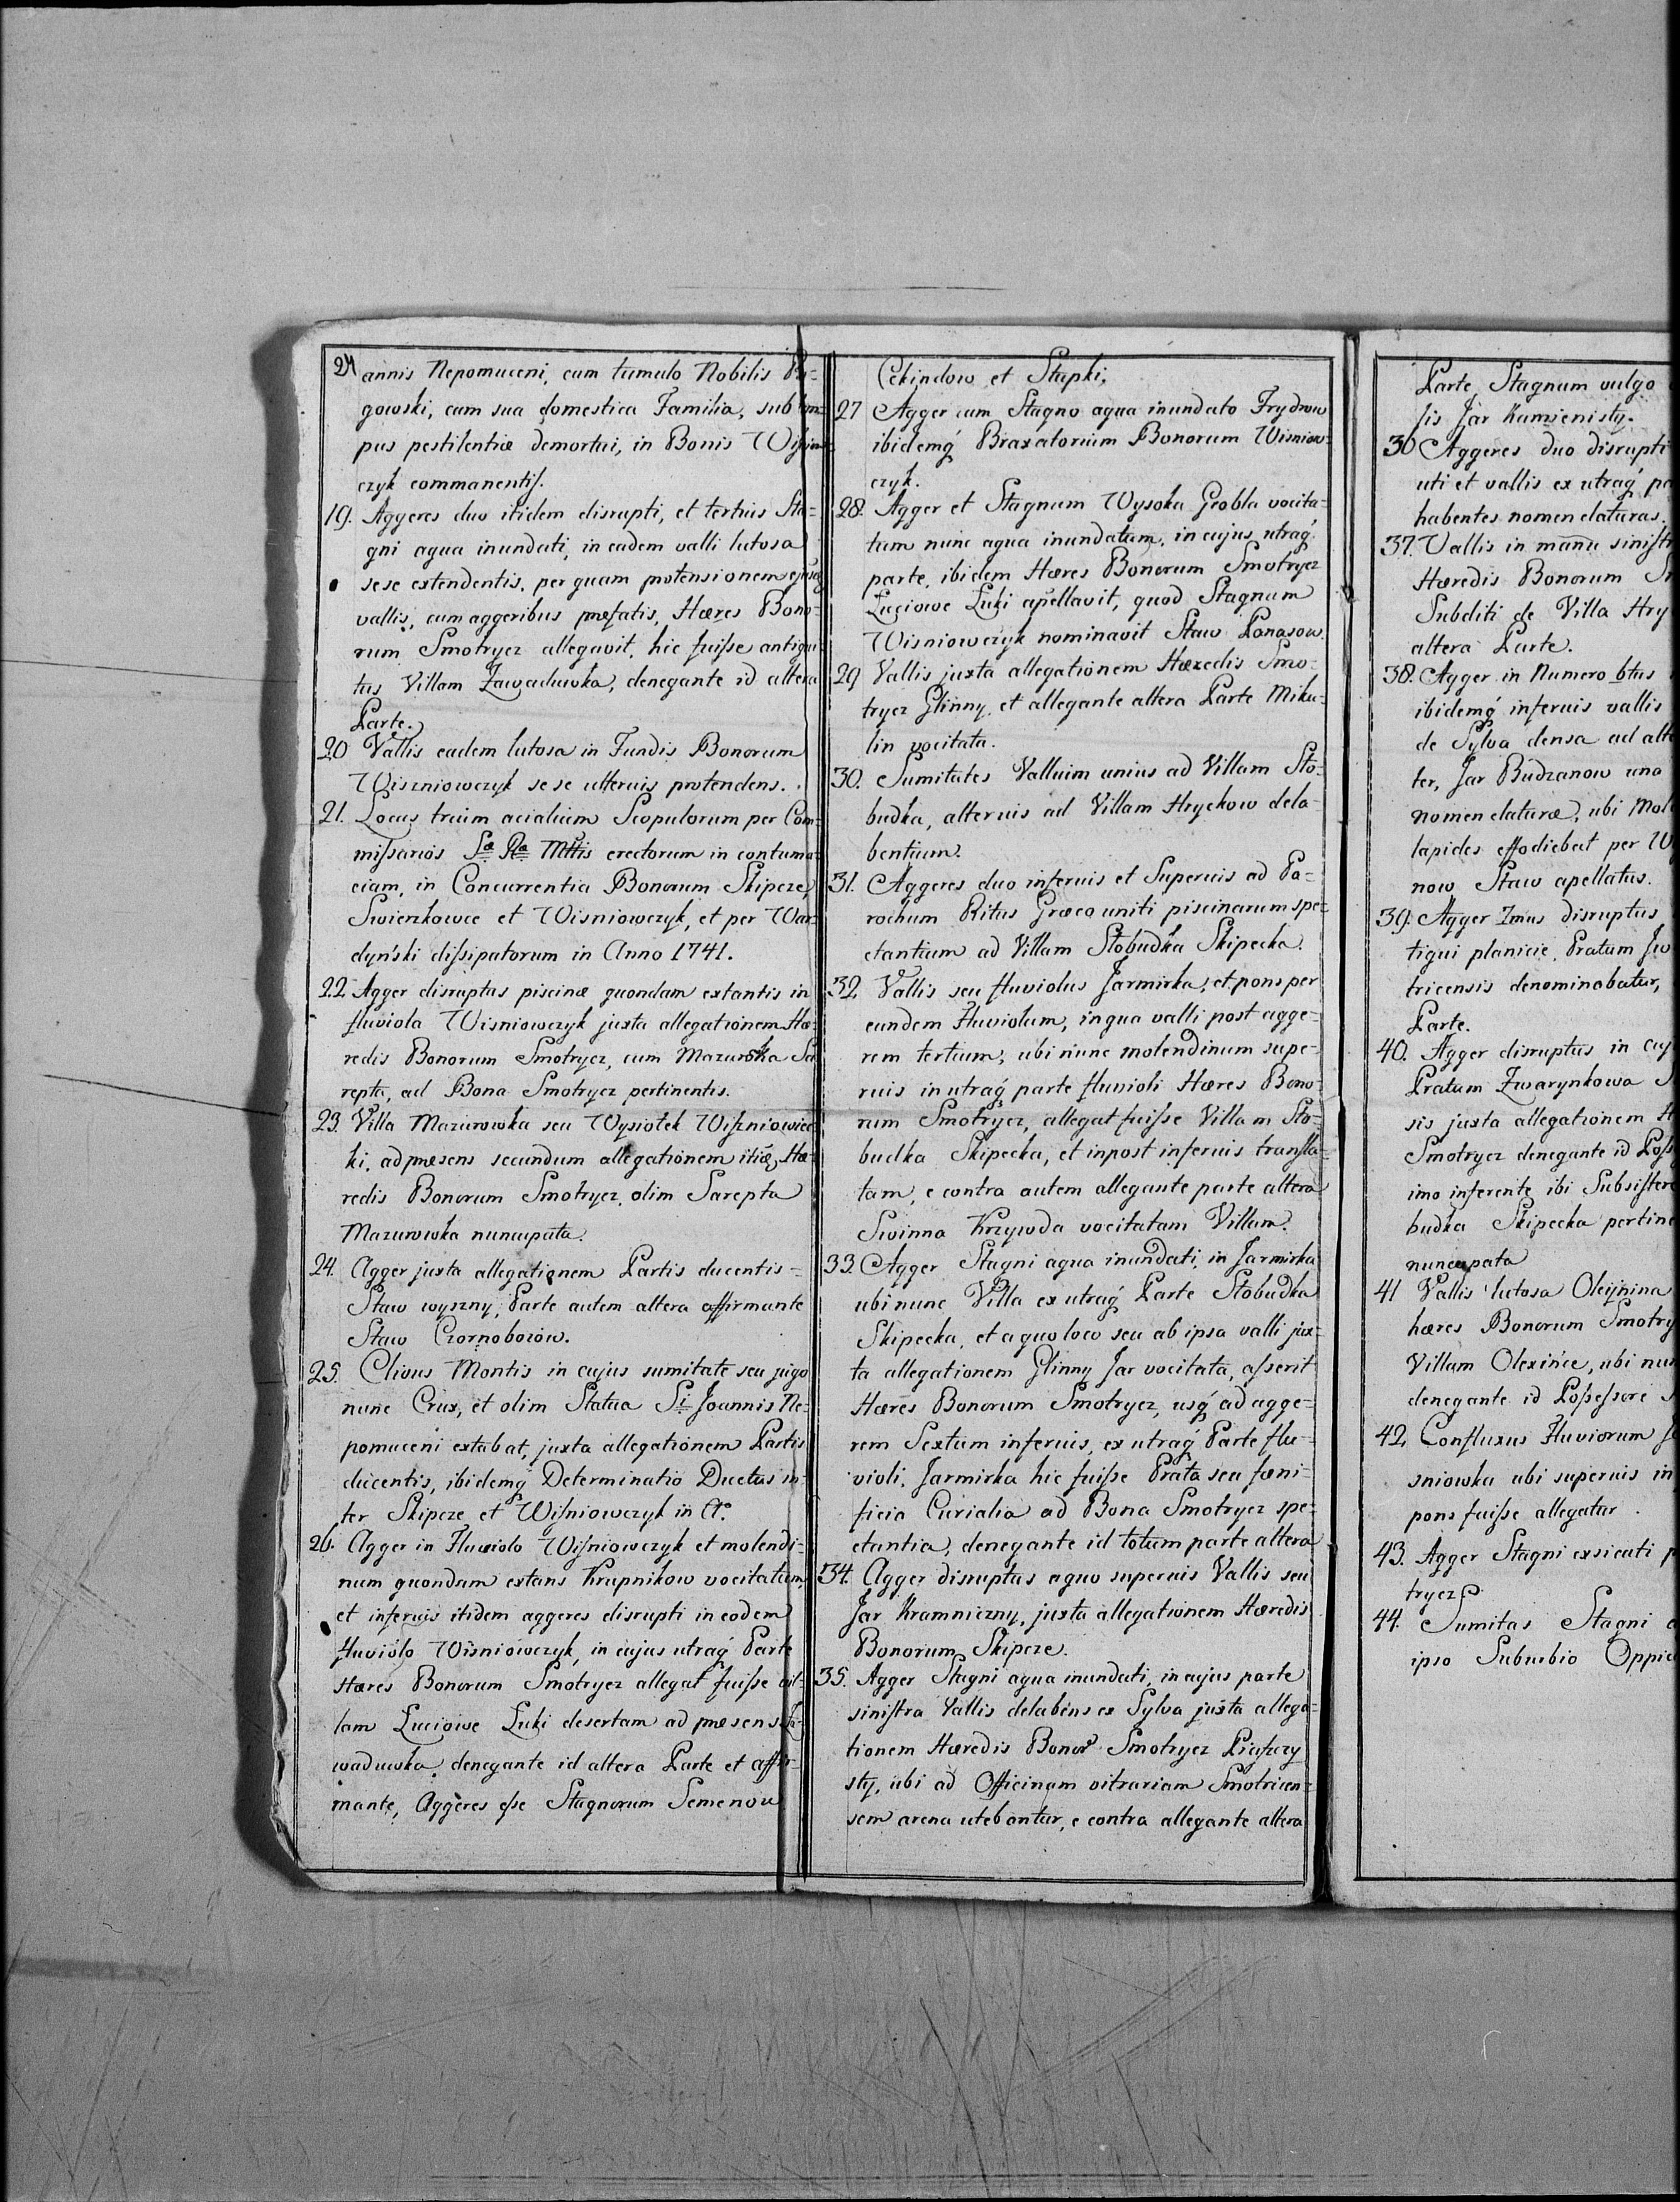 24
annis Nepomuceni, cum tumulo Nobilis
gowski, cum sua domestica Familia, sub
pus pestilentiæ demortui, in Bonis
czyk commanentis.
19. Aggeres duo itidem disrupti, et tertius Sta-
gni aqua inundati, in eadem valli lutosa
sese extendentis, per quam protensionem
vallis, cum aggeribus præfatis, Hæres Bono-
rum Smotrycz allegavit, hic fuisse antiqui-
tus Villam Zawaduwka, denegante id altera
Parte.
20 Vallis eadem lutosa in Fundis Bonorum
Wiszniowczyk sese ulterius protendens.
21. Locus trium acialium Scopulorum per Com-
missarios Sæ Ræ Mttis erectorum in contuma-
ciam, in Concurrentia Bonorum Skipcze,
Swierzkowce et Wisniowczyk, et per War-
dyński dissipatorum in Anno 1741.
22. Agger disruptus piscinæ quondam extantis in
fluviola Wisniowczyk juxta allegationem Hæ-
redis Bonorum Smotrycz, cum Mazurowka Sa
repta, ad Bona Smotrycz pertinentis.
23. Villa Mazurowka seu Wysiolek Wiszniowiec
ki, ad præsens secundum allegationem Hæ-
redis Bonorum Smotrycz, olim Sarepta
Mazurowka nuncupata.
24. Agger juxta allegationem Partis ducentis =
Staw wyszny, Parte autem altera affirmante
Staw Czornobozow.
25. Clivus Montis in cujus sumitate seu jugo
nunc Crux, et olim Statua Si Joannis Ne-
pomuceni extabat, juxta allegationem Partis
ducentis, ibidemq́ Determinatio Ductus in-
ter Skipcze et Wisniowczyk in Aº
26. Agger in Fluviolo Wisniowczyk et molendi-
num quondam extans Krupnikow vocitatum,
et inferius itidem aggeres disrupti in eodem
fluviolo Wisniowczyk, in cujus utraq́ Parte
Hæres Bonorum Smotrycz allegat fuisse vil-
lam Luciowe Luki desertam ad præsens Za-
waduwka, denegante id altera Parte et affir-
mante, Aggeres esse Stagnorum Semenow
Cekindow et Stapki.
27 Agger cum Stagno aqua inundato Frydrow
ibidemq́ Braxatorium Bonorum Wisniow-
czyk.
28. Agger et Stagnum Wysoka Grobla vocita-
tum nunc aqua inundatum, in cujus utraq́
parte, ibidem Hæres Bonorum Smotrycz
Luciowe Luki apellavit, quod Stagnum
Wisniowczyk nominavit Staw Panasow.
29 Vallis juxta allegationem Hæredis Smo-
trycz Glinny, et allegante altera Parte Miku-
lin vocitata.
30. Sumitates Vallium unius ad Villam Sto-
budka, alterius ad Villam Hryckow dela-
bentium.
31. Aggeres duo inferius et Superius ad Pa-
rochum Ritus Græco uniti piscinarum spe-
ctantium ad Villam Stobudka Skipecka.
32. Vallis seu fluviolus Jarmirka, et pons per
eundem Fluviolum, in qua valli post agge-
rem tertium, ubi nunc molendinum supe-
rius in utraq́ parte fluvioli Hæres Bono-
rum Smotrycz, allegat fuisse Villam Sto-
budka Skipecka, et inpost inferius transla-
tam, e contra autem allegante parte altera
Swinna Krzywda vocitatam Villam.
33. Agger Stagni aqua inundati, in Jarmirka
ubi nunc Villa ex utraq́ Parte Stobudka
Skipecka, et a quo loco seu ab ipsa valli jux-
ta allegationem Glinny Jar vocitata, asserit
Hæres Bonorum Smotrycz, usq́ ad agge-
rem Sextum inferius, ex utraq́ Parte flu-
violi, Jarmirka hic fuisse Prata seu fœni-
ficia Curialia ad Bona Smotrycz spe-
ctantia, denegante id totum parte altera
34. Agger disruptus a quo superius Vallis seu
Jar Kramniczny, juxta allegationem Hæredis
Bonorum Skipcze.
35. Agger Stagni aqua inundati, in cujus parte
sinistra Vallis delabens ex Sylva juxta allega-
tionem Hæredis Bonor Smotrycz Piaszczy
sty, ubi ad Officinam vitrariam Smotricen-
sem arena utebantur, e contra allegante altera
Parte, Stagnum vulgo
sis Jar Kamienisty.
36 Aggeres duo disrupti
uti et vallis ex utraq́
habentes nomenclaturas.
37. Vallis in manu
Hæredis Bonorum
Subditi de Villa
altera Parte.
38. Agger in Numero 6tus
ibidemq́ inferius vallis
de Sylva densa ad
ter, Jar Budzanow una
nomenclaturæ, ubi
lapides effodiebat per
now Staw apellatus.
39. Agger 7mus disruptus
tigui planicie, Pratum
tricensis denominabatur,
Parte.
40. Agger disruptus in
Pratum Zwarynkowa
sis juxta allegationem
Smotrycz denegante id
imo inferente ibi
budka Skipecka
nuncupata
41 Vallis lutosa Oleynina
hæres Bonorum
Villam Olexińce, ubi
denegante id Possessore
42. Confluxus Fluviorum
sniowka ubi superius in
pons fuisse allegatur.
43. Agger Stagni exsicati
trycz
44. Sumitas Stagni
ipso Suburbio